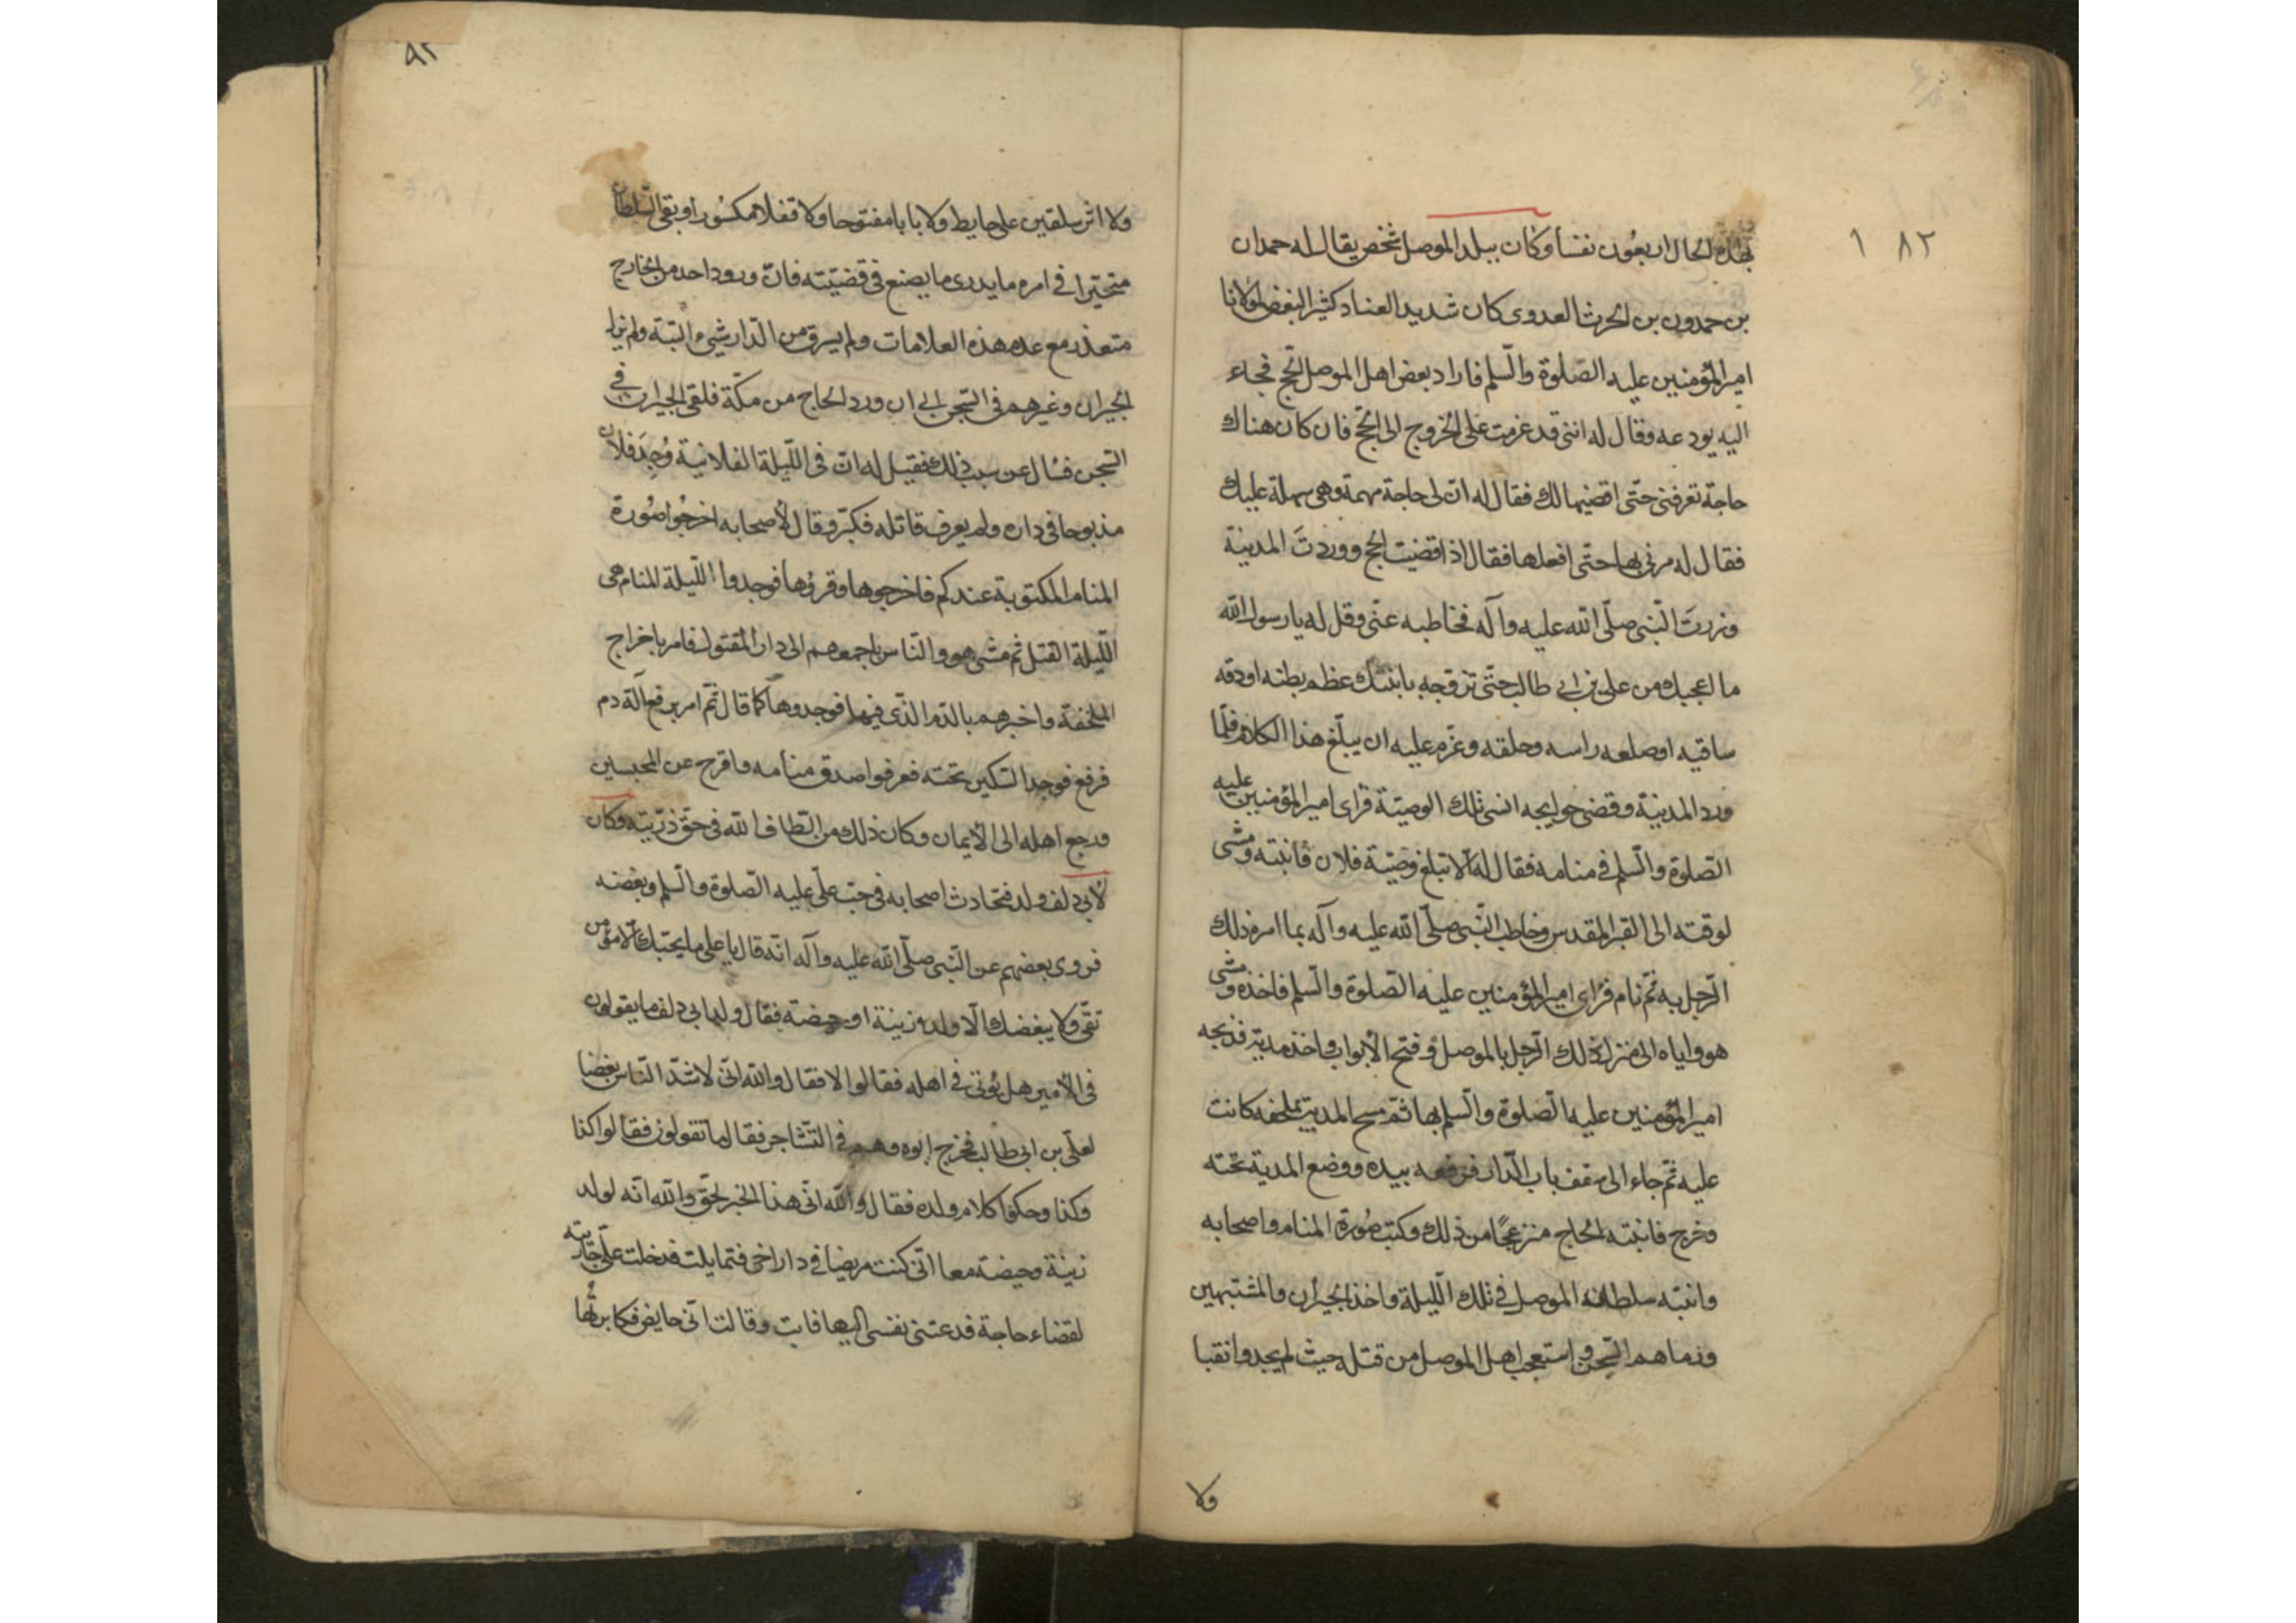 ٨٢ ١
بهذه الحال اربعون نفسا وكان ببلد الموصل شخص يقال له حمدان
بن حمدون بن الحرث العدوى كان شديد العناد كثير البغض لمولانا
امير المؤمنين عليه الصّلوة والسّلم فاراد بعض اهل الموصل الحج فجاء
اليه يودعه وقال له اننى قد عزمت على الخروج الى الحج فان كان هناك
حاجة تعرفنى حتّى اقضيها لك فقال له انّ لى حاجة مهمة وهى سهلة عليك
فقال له مرنى بها حتّى افعلها فقال اذا قضيت الحج ووردتَ المدينة
وزرتَ النّبى صلّى الله عليه وآله فخاطبه عنّى وقل له يا رسول الله
ما اعجبك من على بن ابى طالب حتّى تزوّجه بابنتك عظم بطنه او دقه
ساقيه او صلعه راسه وحلقه وعزم عليه ان يبلّغ هذا الكلام فلمّا
ورد المدينة وقضى حوايجه انسى تلك الوصيّة فراى امير المؤمنين عليه
الصّلوة والسّلم فى منامه فقال له الا تبلغ وصيّة فلان فانتبه ومشى
لوقته الى القبر المقدس وخاطب النّبى صلّى الله عليه وآله بما امره ذلك
الرّجل به ثمّ نام فراى امير المؤمنين عليه الصّلوة والسّلم فاخذه ومشى
هو واياه الى منزل ذلك الرّجل بالموصل وفتح الأبواب واخذ مدية فذبحه
امير المؤمنين عليه الصّلوة والسّلم بها ثمّ مسح المدية بملحفه كانت
عليه ثمّ جاء الى سقف باب الدّار فرفعه بيده ووضع المدية تحته
وخرج فانتبه الحاج منزعجًا من ذلك وكتب صورة المنام واصحابه
وانتبه سلطان الموصل فى تلك اللّيلة واخذ الجيران والمشتبهين
ورماهم السّجن واستعجب اهل الموصل من قتله حيث لم يجدوا نقبا
ولا
ولا اثر سلقين على حايط ولا بابا مفتوحا ولا قفلا مكسورا وبقى السّلطان
متحيّرا فى امره ما يدرى ما يصنع فى قضيّته فانّ ورود احد من الخارج
متعذر مع عدم هذه العلامات ولم يسرق من الدّار شىء البتّة ولم يزل
الجيران وغيرهم فى السّجن الى ان ورد الحاج من مكّة فلقى الجيران فى
السّجن فسال عن سبب ذلك فقيل له انّ فى اللّيلة الفلانية وُجِدَ فلان
مذبوحا فى داره ولم يعرف قاتله فكبّر وقال لأصحابه اخرجُوا صُورة
المنام المكتوبة عندكم فاخرجوها وقرؤها فوجدوا اللّيلة المنام هى
اللّيلة القتل ثم مشى هو والنّاس باجمعهم الى دار المقتول فامر باخراج
الملحفة واخبرهم بالدّم الذّى فيها فوجدوها كما قال ثمّ امر برفع آلة دم
فرفع فوجد السّكين تحته فعرفوا صدق منامه وافرج عن المحبسين
ورجع اهله الى الأيمان وكان ذلك من الطاف الله فى حق ذرّيته وكان
لأبى دلف ولد فتحادث اصحابه فى حبّ علّى عليه الصّلوة والسّلم وبغضه
فروى بعضهم عن النّبى صلّى الله عليه وآله انّه قال يا على ما يحبّك الّا مؤمن
تقّى ولا يبغضك الّا ولد زينة او حيضة فقال ولد ابى دلف ما يقولون
فى الأمير هل يُؤتى فى اهله فقالوا لا فقال والله انّى لاشدّ النّاس بغضا
لعلّى بن ابى طالب فخرج ابوه وهم فى التّشاجر فقال ما تقولون فقالوا كذا
وكذا وحكوا كلام ولده فقال والله انّ هذا الخبر لحقّ والله انّه لولد
زينة وحيضة معا انّى كنت مريضا فى دار اخى فتمايلت فدخلت علّى جارية
لقضاء حاجة فدعتنى نفسى اليها فابت وقالت انّى حايض فكابرتُها